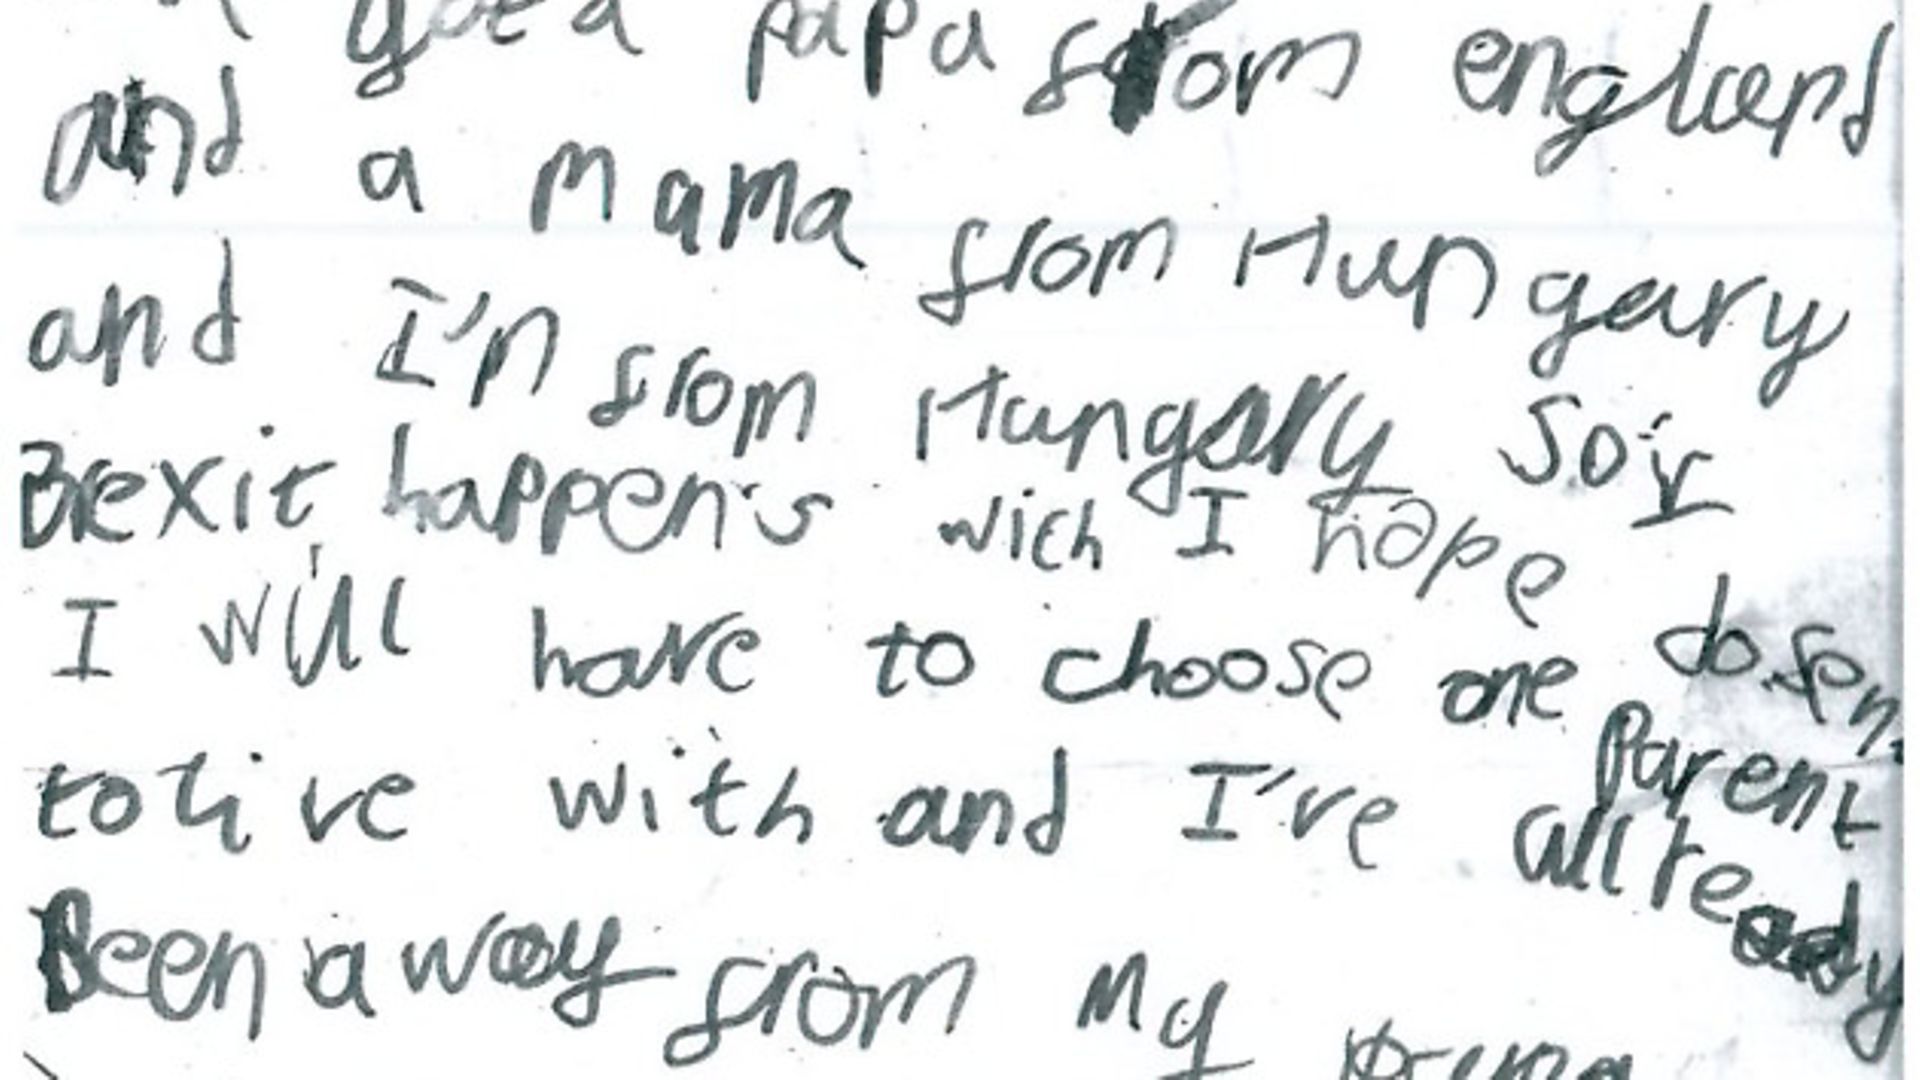 got a papa from england
and a mama from Hungary
and I'm from Hungary so if
Brexit happen's wich I hope dosen
I will have to choose one parent
to live with and I've allready
Been away from my